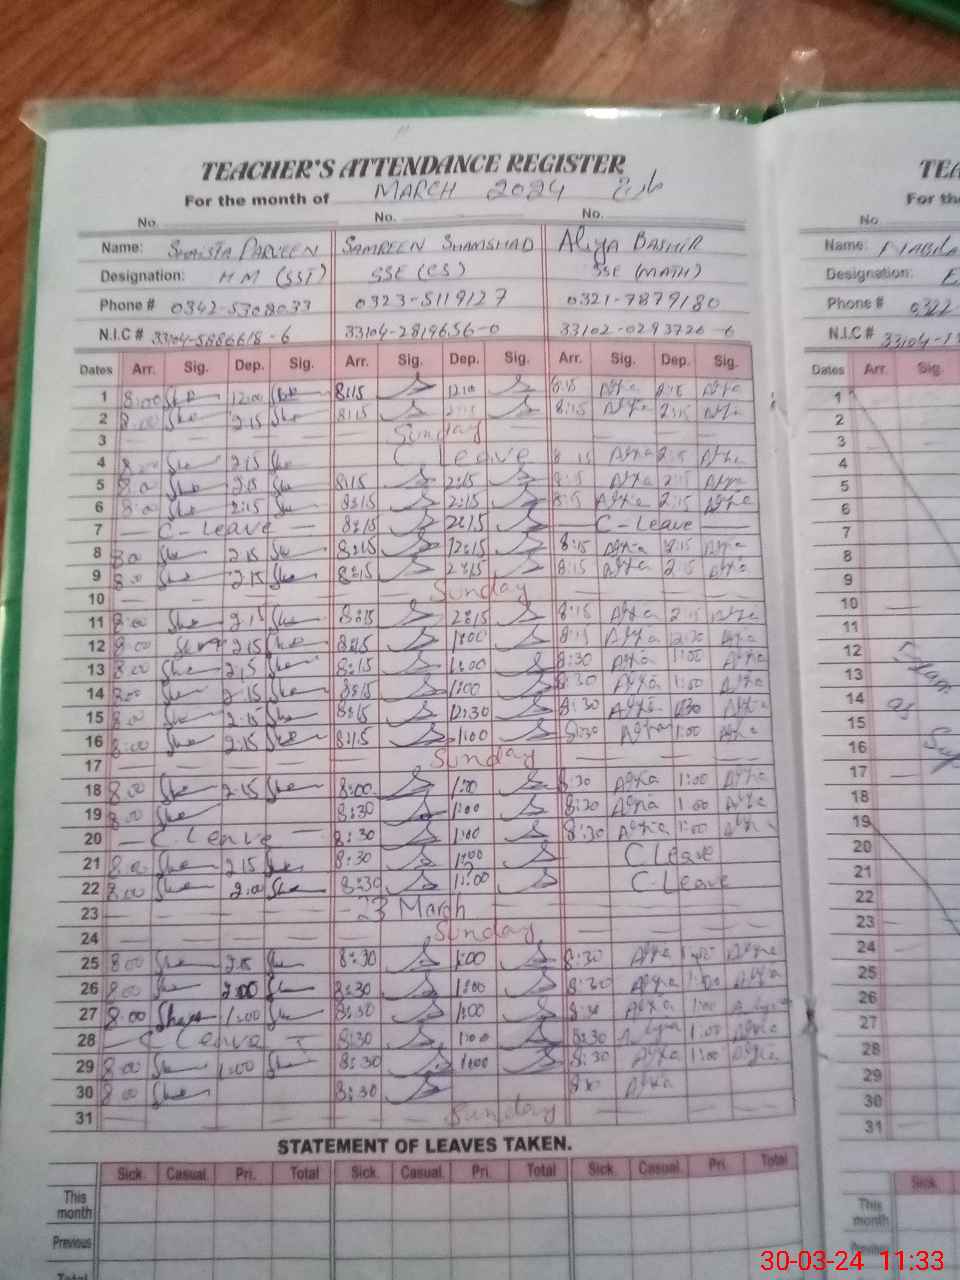 TEACHER'S ATTENDANCE REGISTER TEA
For the month of MARCH 2024 مارچ For the
No. No. No. No
Name: Shaista Parveen SAMREEN SHAMSHAD Aliya BASHIR Name:
Designation: HM (SST) SSE (CS) SSE (MATH) Designation: E
Phone # 0342-5308033 0323-5119127 0321-7879180 Phone # 0322-
N.I.C # 33104-5886618-6 33104-2819656-0 33102-0293726-6 N.I.C # 33104-
Dates Arr. Sig. Dep. Sig. Arr. Sig. Dep. Sig. Arr. Sig. Dep. Sig. Dates Arr. Sig.
1 8:00 She 12:00 She 8:15 12:00 8:15 Aliya 2:15 Aliya 1
2 8:00 She 2:15 She 8:15 8:15 Aliya 2:15 Aliya 2
3 Sunday 3
4 8:00 She 2:15 She C Leave 8:15 Aliya 2:15 Aliya 4
5 8:00 She 2:15 She 8:15 2:15 8:15 Aliya 2:15 Aliya 5
6 8:00 She 2:15 She 8:15 2:15 8:15 Aliya 2:15 Aliya 6
7 C-Leave 8:15 2:15 C-Leave 7
8 8:00 She 2:15 She 8:15 12:15 8:15 Aliya Aliya 8
9 8:00 She 2:15 She 8:15 2:15 8:15 Aliya 2:15 Aliya 9
10 Sunday 10
11 8:00 She 2:15 She 8:15 2:15 8:15 Aliya 2:15 Aliya 11
12 8:00 She 2:15 She 8:15 1:00 8:15 Aliya 12:30 Aliya 12
13 8:00 She 2:15 She 8:15 1:00 8:30 Aliya 1:00 Aliya 13
14 8:00 She 2:15 She 8:15 1:00 8:30 Aliya 1:00 Aliya 14
15 8:00 She 2:15 She 8:15 12:30 8:30 Aliya Aliya 15
16 8:00 She 2:15 She 8:15 1:00 8:30 Aliya 1:00 Aliya 16
17 Sunday 17
18 8:00 She 2:15 She 8:00 1:00 8:30 Aliya 1:00 Aliya 18
19 8:00 She 8:30 1:00 8:30 Aliya 1:00 Aliya 19
20 C. Leave 8:30 1:00 8:30 Aliya 1:00 Aliya 20
21 8:00 She 2:15 She 8:30 1:00 C Leave 21
22 8:00 She 2:00 She 8:30 1:00 C-Leave 22
23 23 March 23
24 Sunday 24
25 8:00 She 2:15 She 8:30 1:00 8:30 Aliya 1:00 Aliya 25
26 8:00 She 2:00 She 8:30 1:00 8:30 Aliya 1:00 Aliya 26
27 8:00 She 1:00 She 8:30 1:00 8:30 Aliya 1:00 Aliya 27
28 C Leave 8:30 1:00 8:30 Aliya 1:00 Aliya 28
29 8:00 She 1:00 She 8:30 1:00 8:30 Aliya 1:00 Aliya 29
30 8:00 She 8:30 8:30 Aliya 30
31 Sunday 31
STATEMENT OF LEAVES TAKEN.
Sick. Casual. Pri. Total Sick. Casual. Pri. Total Sick. Casual. Pri. Total Sick.
This month This month
Previous Previous
Total
30-03-24 11:33